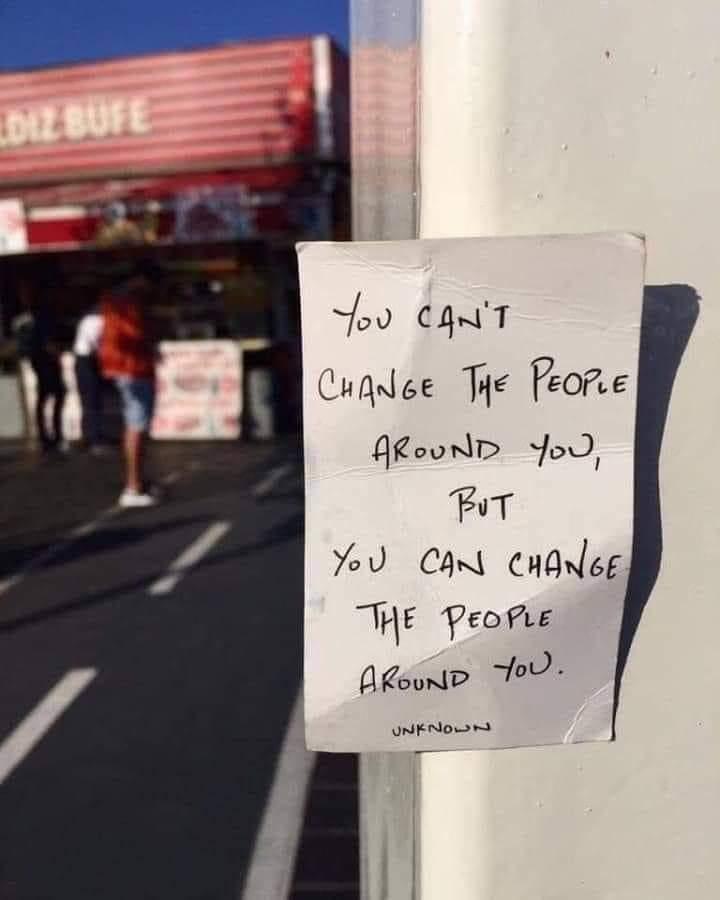 DIZ BÜFE
You CAN'T
CHANGE THE PEOPLE
AROUND YOU,
BUT
YOU CAN CHANGE
THE PEOPLE
AROUND YOU.
UNKNOWN